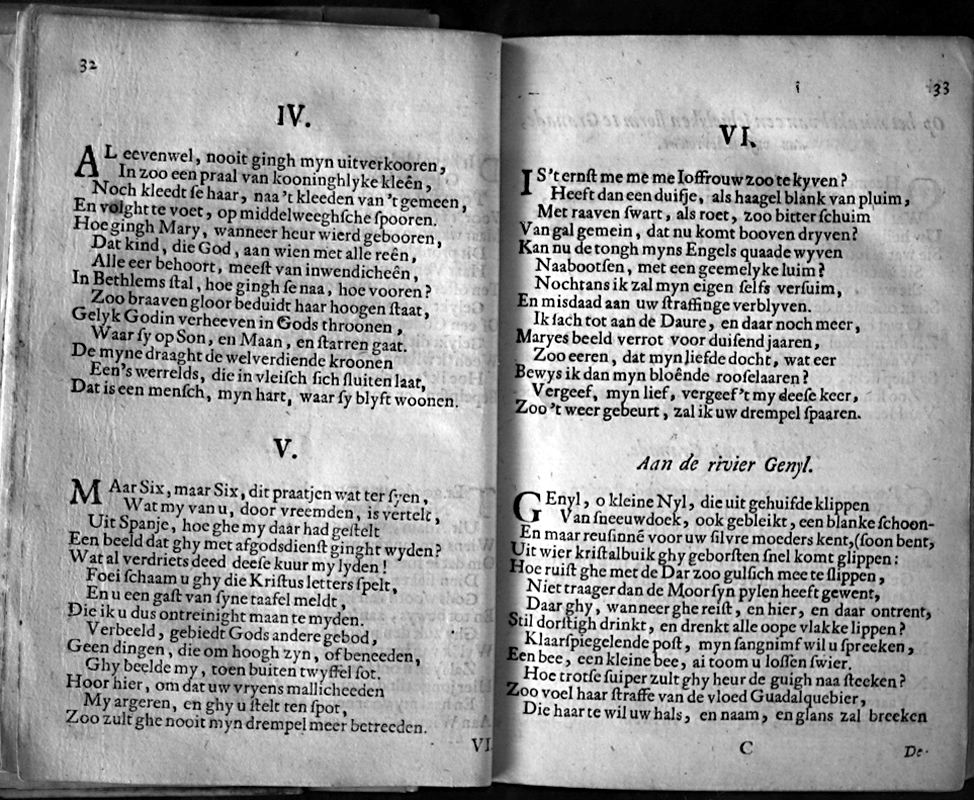 32
IV.
AL eevenwel, nooit gingh myn uitverkooren,
In zoo een praal van kooninghlyke kleên,
Noch kleedt ſe haar, naa 't kleeden van 't gemeen,
En volght te voet, op middelweeghſche ſpooren.
Hoe gingh Mary, wanneer heur wierd gebooren,
Dat kind, die God, aan wien met alle reên,
Alle eer behoort, meeſt van inwendicheên,
In Bethlems ſtal, hoe gingh ſe naa, hoe vooren?
Zoo braaven gloor beduidt haar hoogen ſtaat,
Gelyk Godin verheeven in Gods throonen,
Waar ſy op Son, en Maan, en ſtarren gaat.
De myne draaght de welverdiende kroonen
Een's werrelds, die in vleiſch ſich ſluiten laat,
Dat is een menſch, myn hart, waar ſy blyft woonen.
V.
MAar Six, maar Six, dit praatjen wat ter ſyen,
Wat my van u, door vreemden, is vertelt,
Uit Spanje, hoe ghe my daar had geſtelt
Een beeld dat ghy met afgodsdienſt ginght wyden?
Wat al verdriets deed deeſe kuur my lyden!
Foei ſchaam u ghy die Kriſtus letters ſpelt,
En u een gaſt van ſyne taafel meldt,
Die ik u dus ontreinight maan te myden.
Verbeeld, gebiedt Gods andere gebod,
Geen dingen, die om hoogh zyn, of beneeden,
Ghy beelde my, toen buiten twyffel ſot.
Hoor hier, om dat uw vryens mallicheeden
My argeren, en ghy u ſtelt ten ſpot,
Zoo zult ghe nooit myn drempel meer betreeden.
VI.
33
VI.
IS't ernſt me me me Ioffrouw zoo te kyven?
Heeft dan een duifje, als haagel blank van pluim,
Met raaven ſwart, als roet, zoo bitter ſchuim
Van gal gemein, dat nu komt booven dryven?
Kan nu de tongh myns Engels quaade wyven
Naabootſen, met een geemelyke luim?
Nochtans ik zal myn eigen ſelfs verſuim,
En misdaad aan uw ſtraffinge verblyven.
Ik ſach tot aan de Daure, en daar noch meer,
Maryes beeld verrot voor duiſend jaaren,
Zoo eeren, dat myn liefde docht, wat eer
Bewys ik dan myn bloênde rooſelaaren?
Vergeef, myn lief, vergeef 't my deeſe keer,
Zoo 't weer gebeurt, zal ik uw drempel ſpaaren.
Aan de rivier Genyl.
GEnyl, o kleine Nyl, die uit gehuifde klippen
Van ſneeuwdoek, ook gebleikt, een blanke ſchoon-
En maar reuſinné voor uw ſilvre moeders kent, (ſoon bent,
Uit wier kriſtalbuik ghy geborſten ſnel komt glippen:
Hoe ruiſt ghe met de Dar zoo gulſich mee te ſlippen,
Niet traager dan de Moorſyn pylen heeft gewent,
Daar ghy, wanneer ghe reiſt, en hier, en daar ontrent,
Stil dorſtigh drinkt, en drenkt alle oope vlakke lippen?
Klaarſpiegelende poſt, myn ſangnimf wil u ſpreeken,
Een bee, een kleine bee, ai toom u loſſen ſwier.
Hoe trotſe ſuiper zult ghy heur de guigh naa ſteeken?
Zoo voel haar ſtraffe van de vloed Guadalquebier,
Die haar te wil uw hals, en naam, en glans zal breeken
C
De